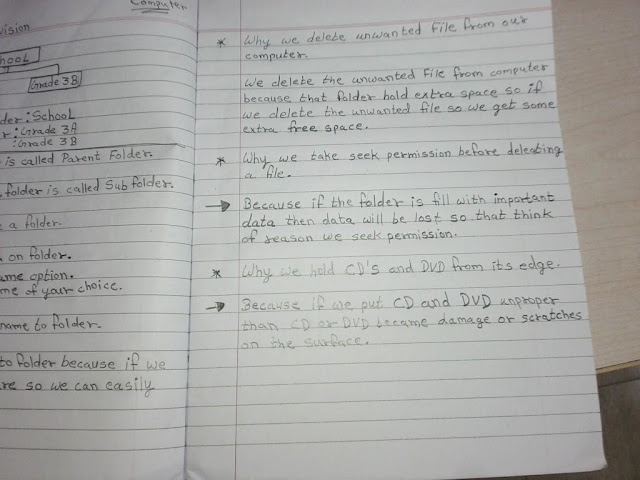 Computer
vision
hool
Grade 3B
der : School
r : Grade 3A
: Grade 3B
is called Parent Folder.
folder is called Sub folder.
e a folder.
on folder.
ame option.
me of your choice.
name to folder.
to folder because if we
re so we can easily
* Why we delete unwanted File from our
computer.
We delete the unwanted File from computer
because that folder hold extra space so if
we delete the unwanted file so we get some
extra free space.
* Why we take seek permission before deleating
a file.
→ Because if the folder is fill with important
data then data will be lost so that think
of reason we seek permission.
* Why we hold CD's and DVD from its edge.
→ Because if we put CD and DVD unproper
than CD or DVD became damage or scratches
on the surface.